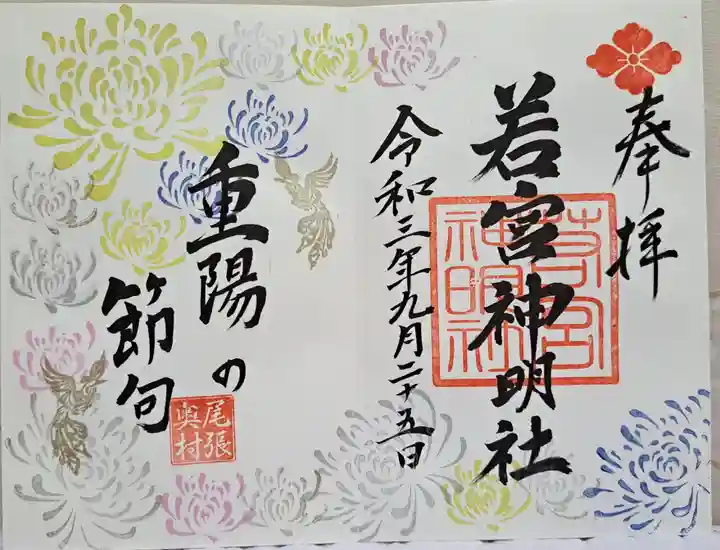 奉拝
若宮神明社
若宮
神明社
令和三年九月二十五日
重陽の
節句
尾張
奥村